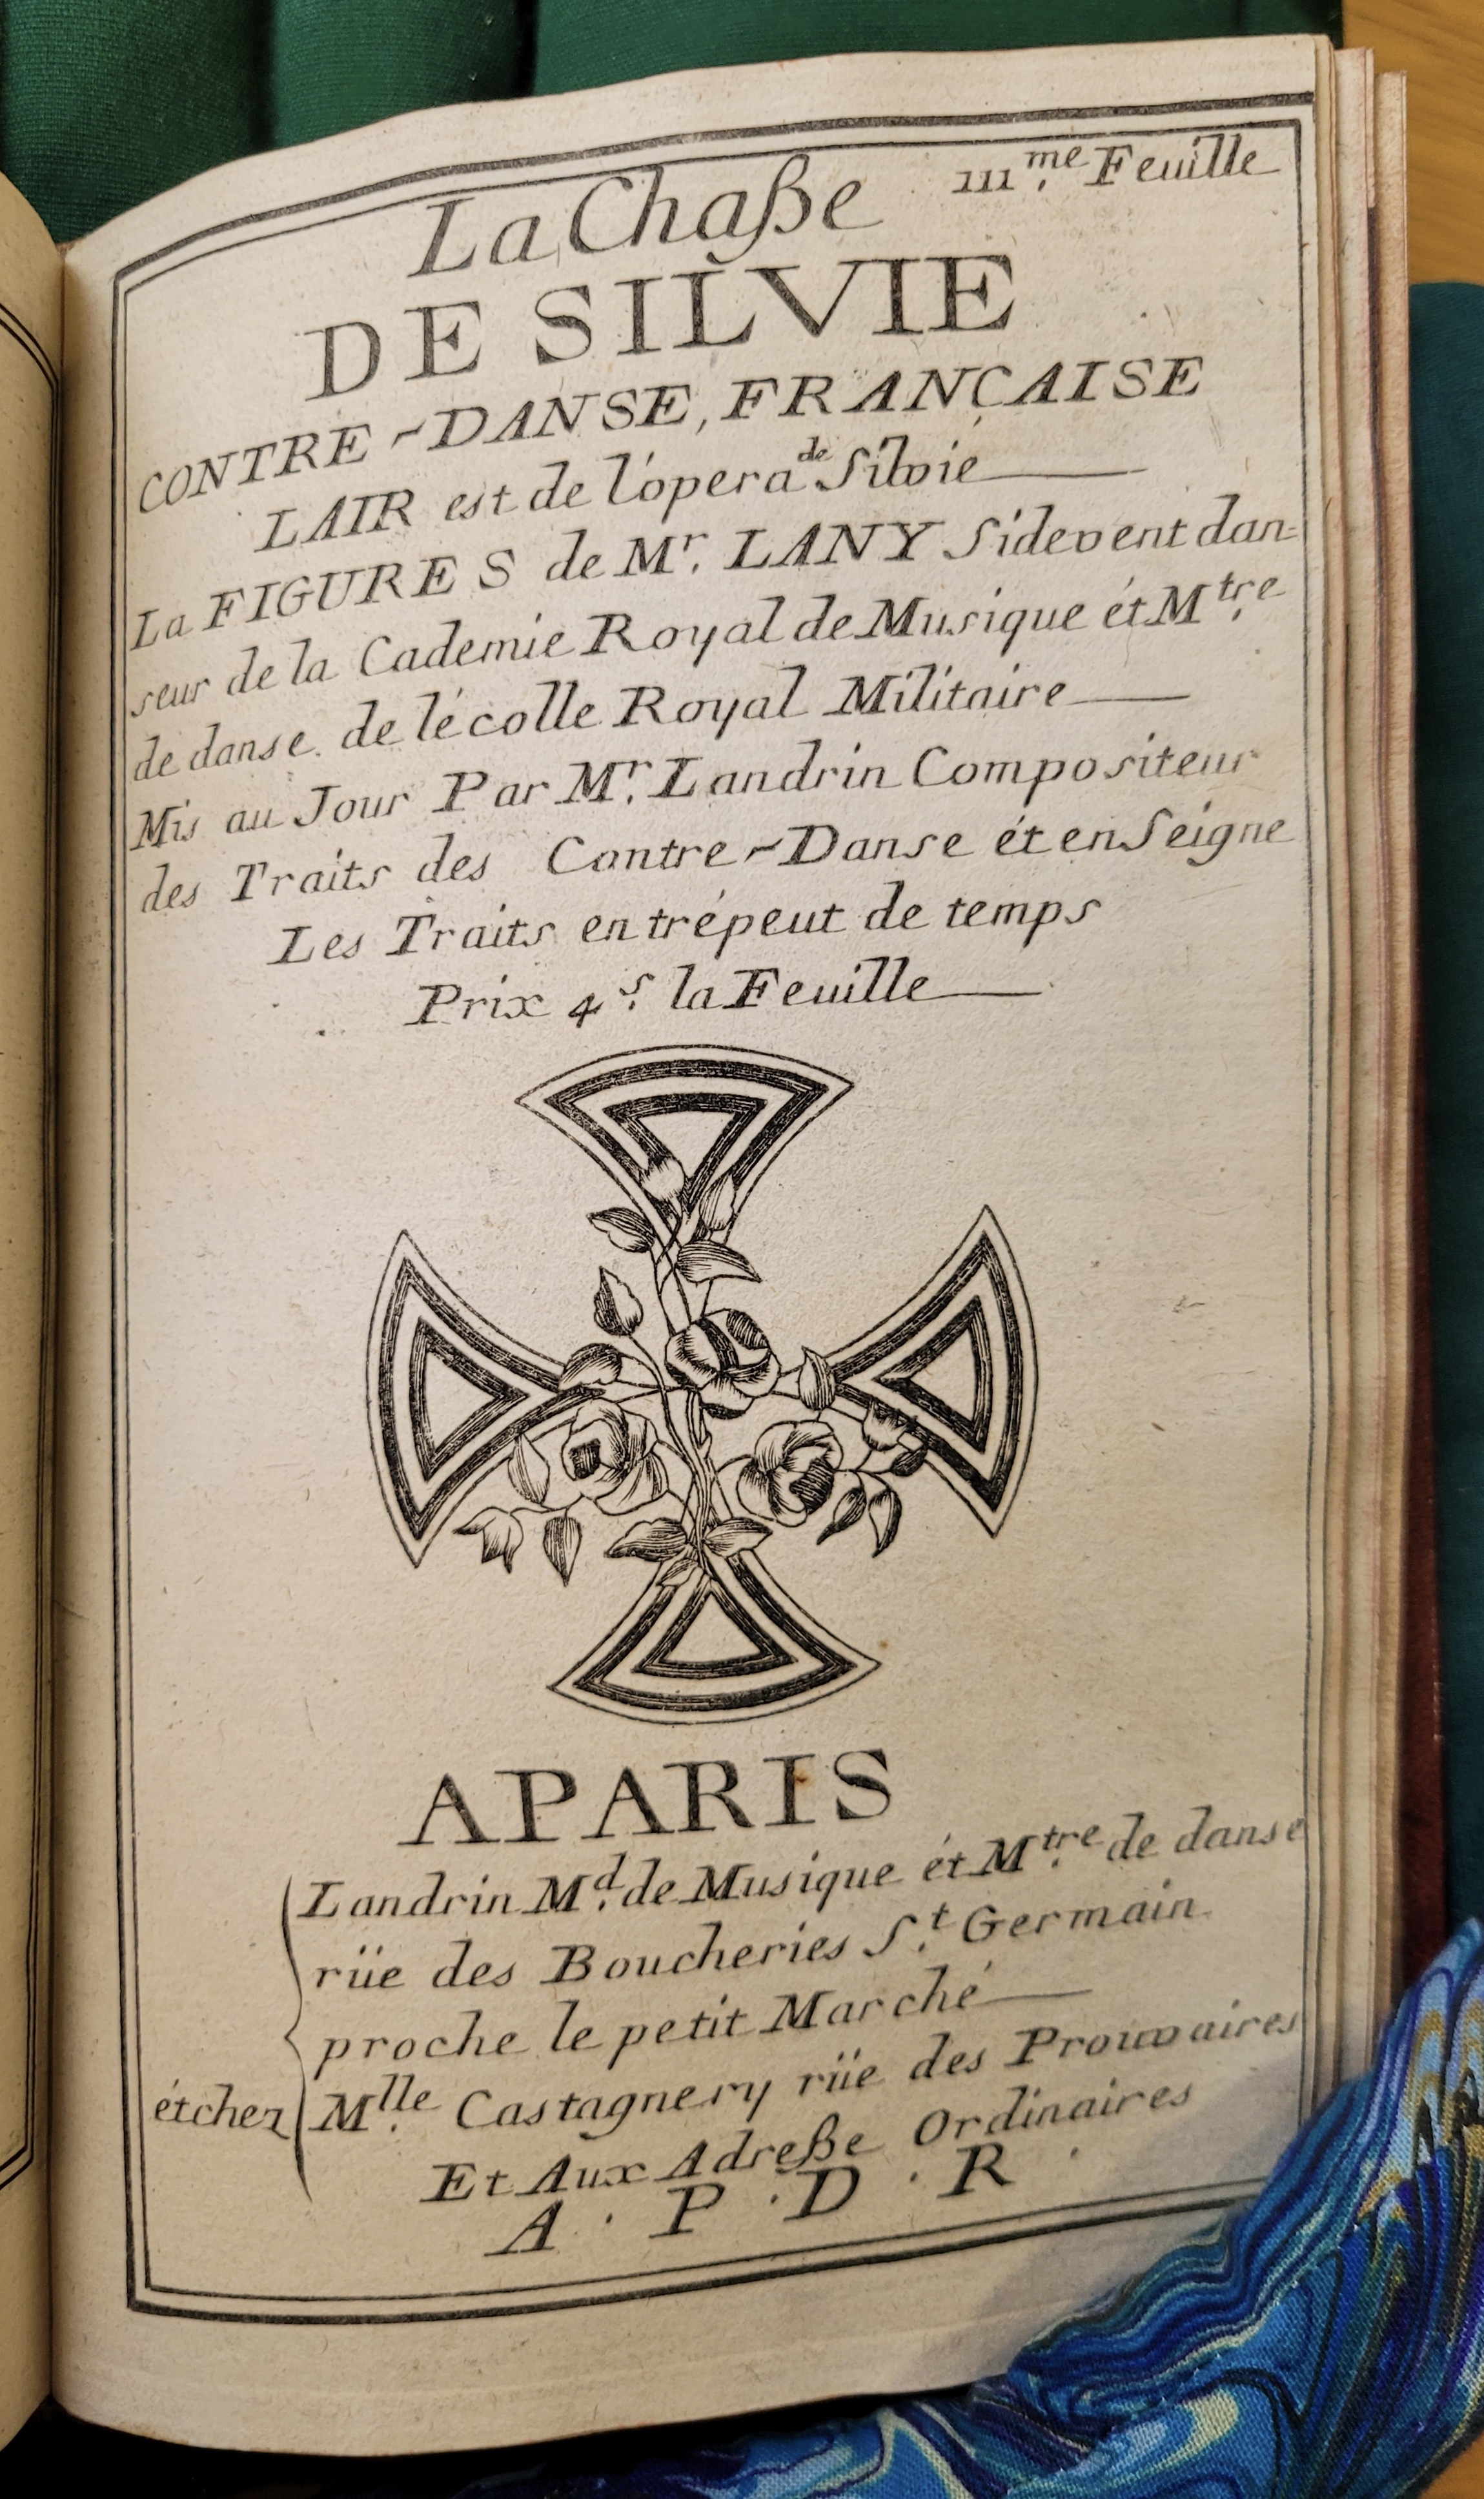 IIIme. Feuille
La Chaße
DE SILVIE
CONTRE-DANSE, FRANÇAISE
LAIR est de l'ópera de Silvie
La FIGURES de Mr. LANY Sidevent dan-
seur de la Cademie Royal de Musique ét Mtre.
de danse. de lécolle Royal Militaire
Mis au Jour Par Mr. Landrin Compositeur
des Traits des Contre-Danse ét enSeigne
Les Traits en trépeut de temps
Prix 4s. la Feuille
APARIS
Landrin Md. de Musique ét Mtre. de danse
rüe des Boucheries St. Germain
proche le petit Marché
étchez Mlle. Castagnery rüe des Prouvaires
Et Aux Adreße Ordinaires
A . P . D . R